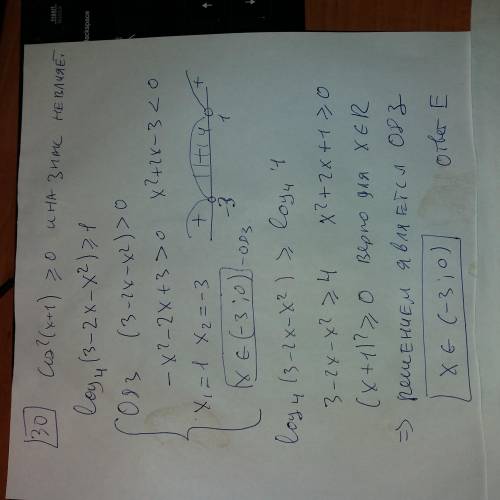 30 cos²(x+1) ≥ 0 и на знак не влияет
log₄(3-2x-x²) ≥ 1
{ ОДЗ (3-2x-x²) > 0
-x²-2x+3 > 0 x²+2x-3 < 0
x₁=1 x₂=-3
+ +
-3 1
x ∈ (-3; 0) -ОДЗ
log₄(3-2x-x²) ≥ log₄ 4
3-2x-x² ≥ 4 x²+2x+1 ≥ 0
(x+1)² ≥ 0 верно для x∈R
=> решением является ОДЗ
x ∈ (-3; 0) ответ E